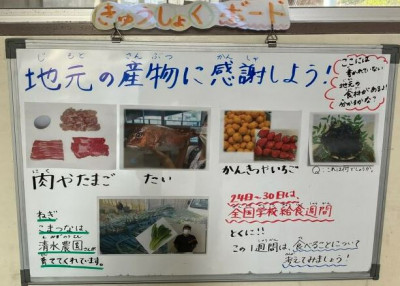 きゅうしょくボード
地元の産物に感謝しよう!
じもと さんぶつ かんしゃ
ここには
書かれていない
地元の
食材があるよ!
分かるかな?
肉やたまご
にく
たい
かんきつやいちご
Q:これは何でしょうか。
ねぎ
こまつなは
清水農園さんが
育ててくれています。
24日~30日は、
全国学校給食週間
とくに!!
この1週間は、食べることについて
考えてみましょう!